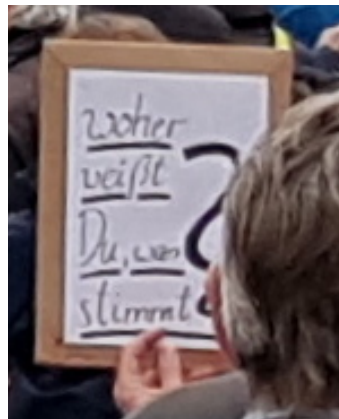 woher
weißt
Du, was
stimmt?